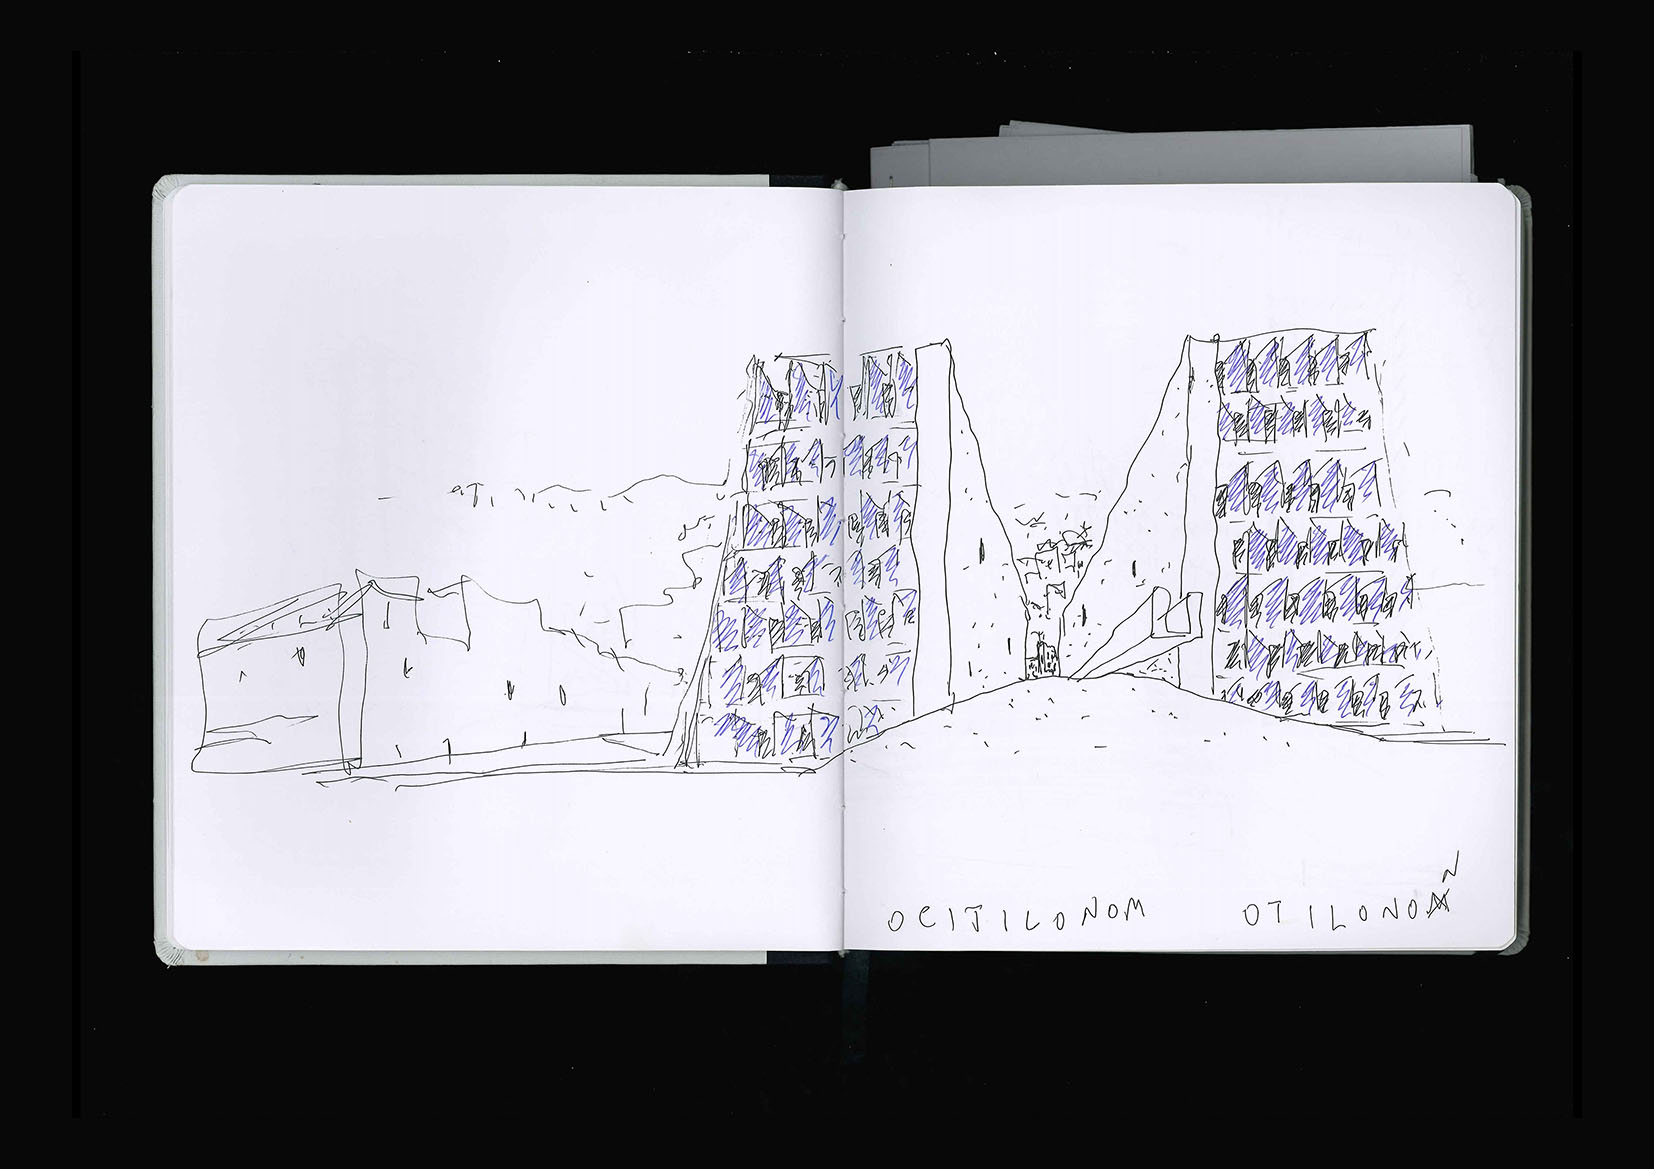 OCITILONOM OTILONO